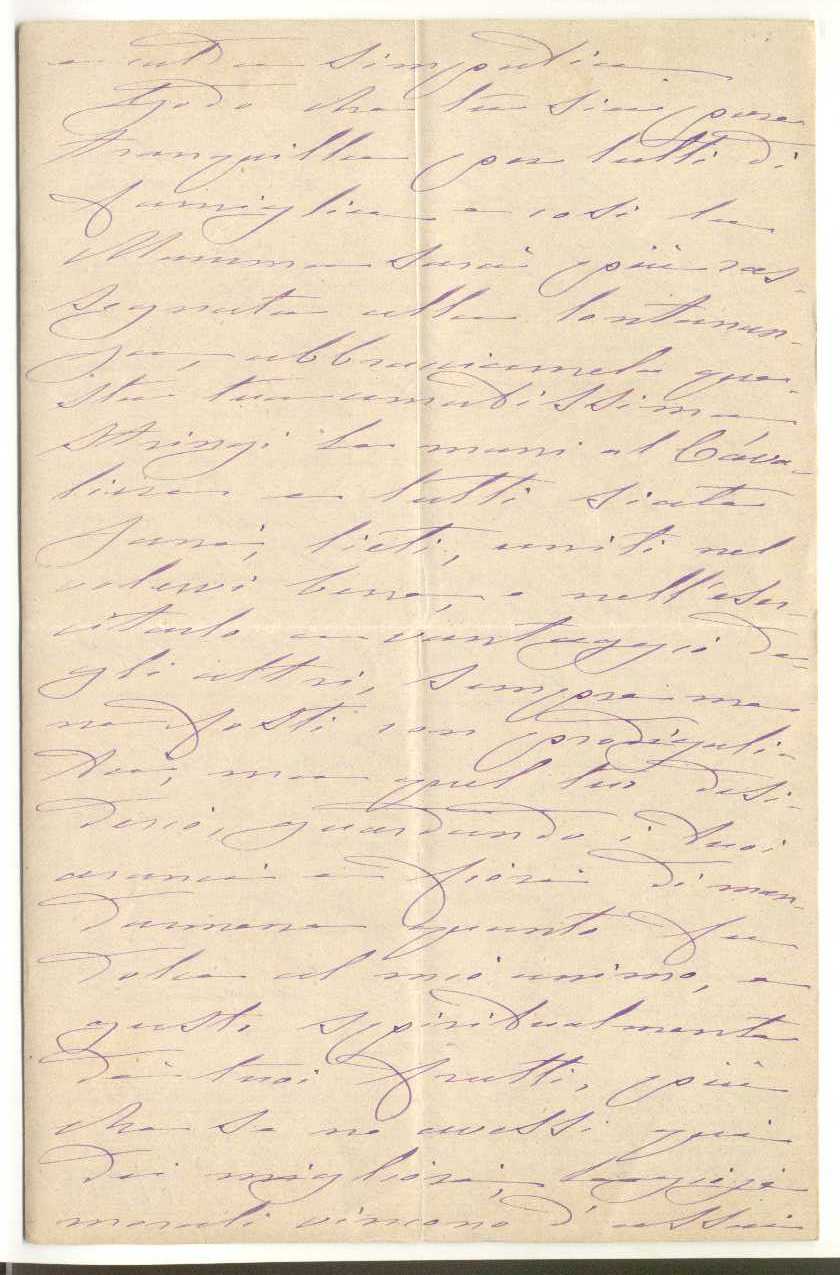 e tutta simpatia
Godo che tu sia pure
tranquilla per tutti di
famiglia e così la
Mamma sarà più ras-
segnata alla lontanan-
za, abbracciamela que-
sta tua amatissima
stringi le mani al Cava-
liere e tutti siate
sani, lieti, uniti nel
volervi bene, e nell'eser-
citarlo a vantaggio de-
gli altri, sempre me
ne fosti con prodigali-
tà, ma quel tuo desi-
derio, guardando i tuoi
aranci e fiori di man-
darmene quanto fu
dolce al mio animo, e
gusti spiritualmente
de' tuoi frutti, più
che se ne avessi qui
dei migliori, le gioje
morali vincono d'assai